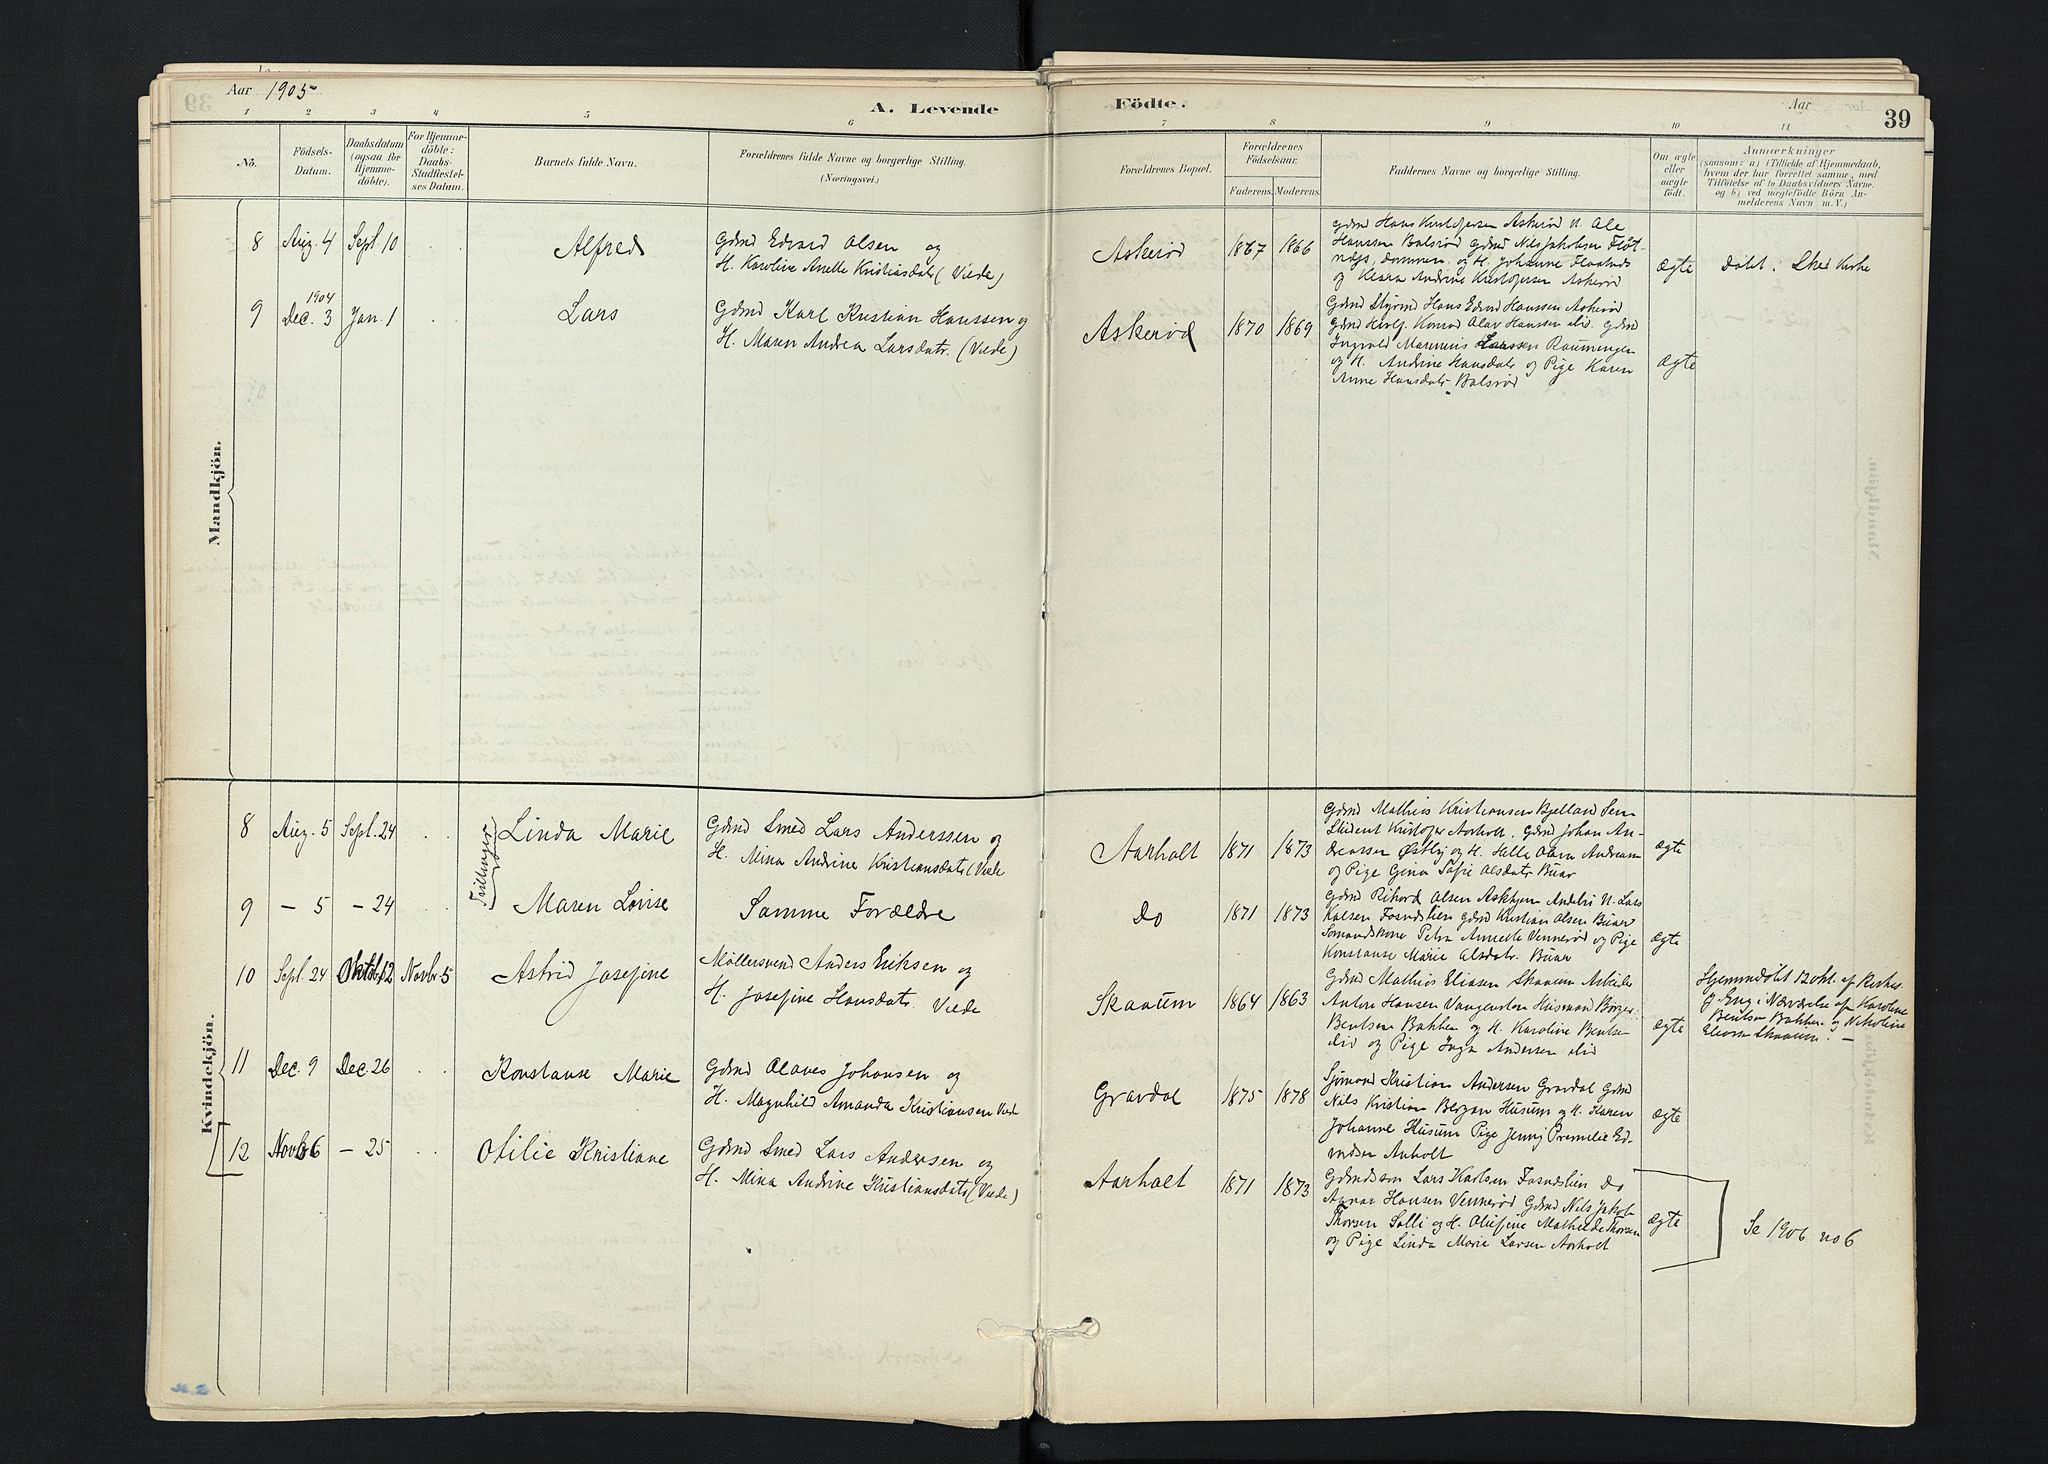 Aar 1905
A. Levende
Födte.
Aar
39
1 2 3 4 5 6 7 8 9 10 11
Nô.
Födsels-
Datum.
Daabsdatum
(ogsaa for
Hjemme-
döbte).
For Hjemme-
döbte:
Daabs-
Stadfæstel-
ses Datum.
Barnets fulde Navn.
Forældrenes fulde Navne og borgerlige Stilling.
(Næringsvei.)
Forældrenes Bopæl.
Forældrenes
Födselsaar.
Faderens. Moderens.
Faddernes Navne og borgerlige Stilling.
Om ægte
eller
uægte
födt.
Anmærkninger
(saasom: a) i Tilfælde af Hjemmedaab,
hvem der har forrettet samme, med
Tilföielse af to Daabsvidners Navne.
og b) ved uægtefödte Börn An-
melderens Navn m. V.)
Mandkjön.
8 Aug. 4 Sept. 10 Alfred
Gdmd Edvard Olsen og
H. Karoline Anette Kristiansdatr (Viede)
Askerød 1867 1866
Gdmd Hans Kristofersen Askerød U. Ole
Hanssen Bolsrød Gdmd Nils Jakobsen
og H. Johanne
og Klara Andrine Kristofersen Askerød
ægte
Døbt i Skee Kirke
9 1904 Dec. 3 Jan. 1 Lars
Gdmd Karl Kristian Hanssen og
H. Maren Andrea Larsdatr. (Viede)
Askerød 1870 1869
Gdmd Styrmd Hans Edvard Hanssen Askerød
Gdmd Konrad Olav Hanssen ibid. Gdmd
Ingvald Larssen
og H. Andrine Hansdatr og Pige Karen
Anne Hansdatr Bolsrød
ægte
Kvindekjön.
Tvillinger
8 Aug. 5 Sept. 24 Linda Marie
Gdmd Smed Lars Anderssen og
H. Mina Andrine Kristiansdatr (Viede
Aarholt 1871 1873
Gdmd Mathias Kristiansen Bjelland Sem
Student Kristofer Aarholt. Gdmd Johan An-
dreassen Østby og H. Helle Olava Andreasen
og Pige Gina Sofie Olsdatr Buar
ægte
9 - 5 - 24 Maren Lovise
Samme Forældre
Do 1871 1873
Gdmd Rikard Olsen Askhjem Andebu U. Lars
Karlsen Fosneslien Gdmd Kristian Olsen Buar
Sømandskone Petra Annette Vennerød og Pige
Konstanse Marie Olsdatr. Buar
ægte
10 Sept. 24 Oktob. 12 Novbr 5 Astrid Josefine
Møllersvend Anders Eriksen og
H. Josefine Hansdatr. Viede
Skaaum 1864 1863
Gdmd Mathias Eliasen Skaaum Arbeider
Anton Hansen Vangensten Husmand Børger
Bentsen Bakken og H. Karoline Bentsen
ibid og Pige Inga Andersen ibid
ægte
Hjemmedøbt 12 okt. af Kirkes.
g. Eng i Nærværelse af Karoline
Bentsen Bakken og Nikoline
Eliassen Skaaum. -
11 Dec. 9 Dec. 26 Konstanse Marie
Gdmd Olaves Johansen og
H. Magnhild Amanda Kristiansen Viede
Gravdal 1875 1878
Sjømand Kristian Andersen Gravdal Gdmd
Nils Kristian Bergan Husum og H. Karen
Johanne Husum Pige Jenny Premilie Ed-
vardsen Anholt
ægte
12 Novb. 6 - 25 Otilie Kristiane
Gdmd Smed Lars Andersen og
H. Mina Andrine Kristiansdatr (Viede)
Aarholt 1871 1873
Gdmdsøn Lars Karlsen Fosneslien Do
Agnar Hansen Vennerød Gdmd Nils Jakob
Thorsen Solli og H. Olufine Mathilde Thorsen
og Pige Linda Marie Larsen Aarholt
ægte
Se 1906 no 6